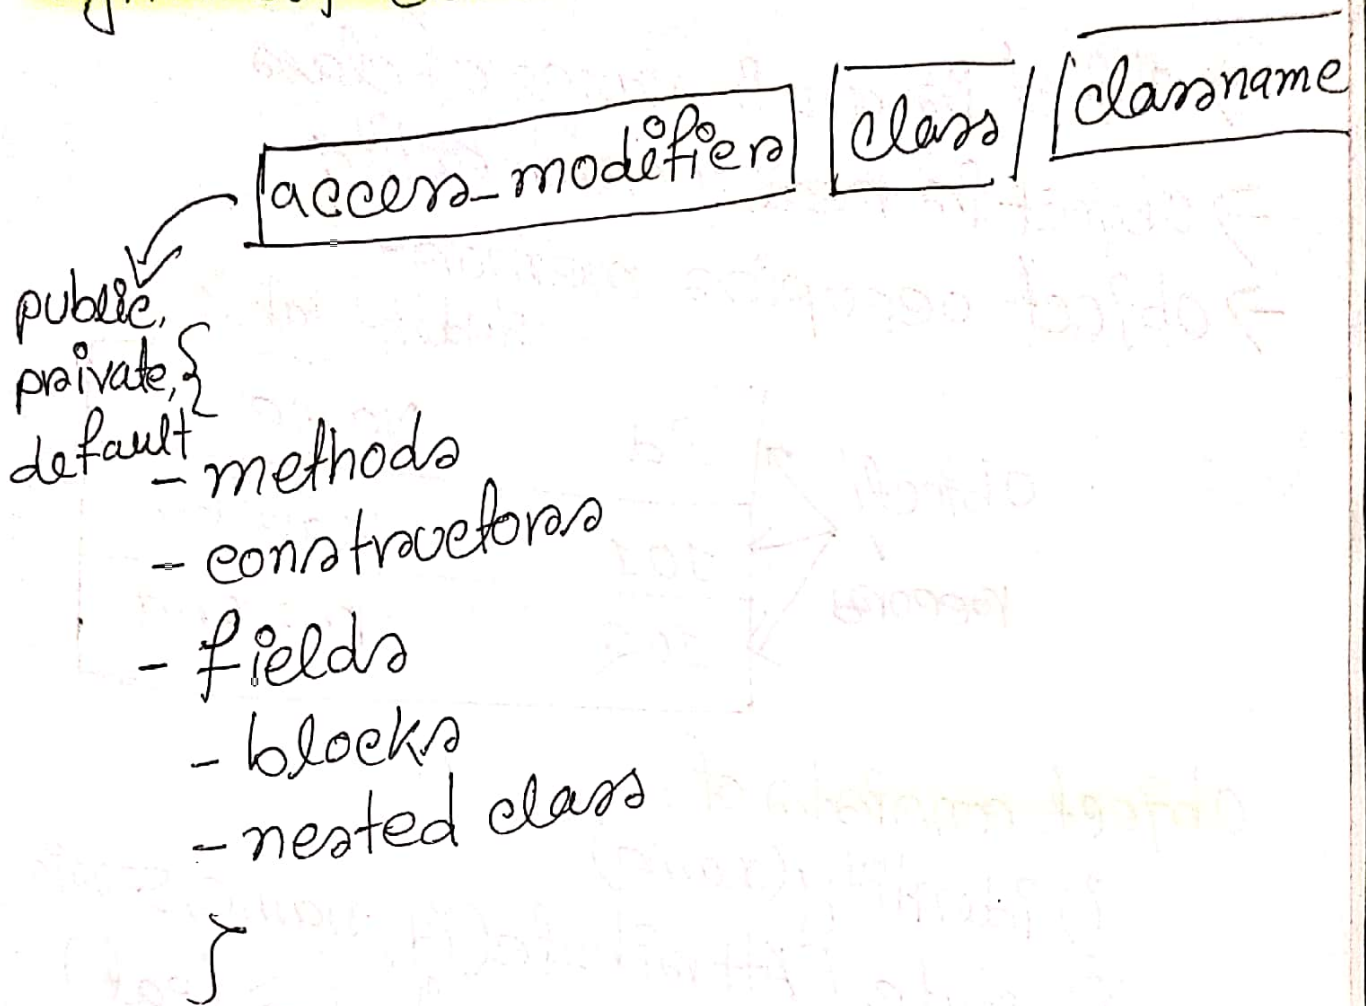 access_modifier class classname
public,
private, {
default
- methods
- constructors
- fields
- blocks
- nested class
}